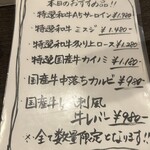 本日のおすすめ品!!
・特選和牛Aサーロイン ¥1.980-
・特選和牛 ミスジ ¥1.480-
・特選和牛 ロース ¥1.980-
・特選国産牛カイノミ ¥1.180-
・国産牛中落ちカルビ ¥980-
国産牛 刺し風
牛レバー ¥980-
※全て数量限定となります!!